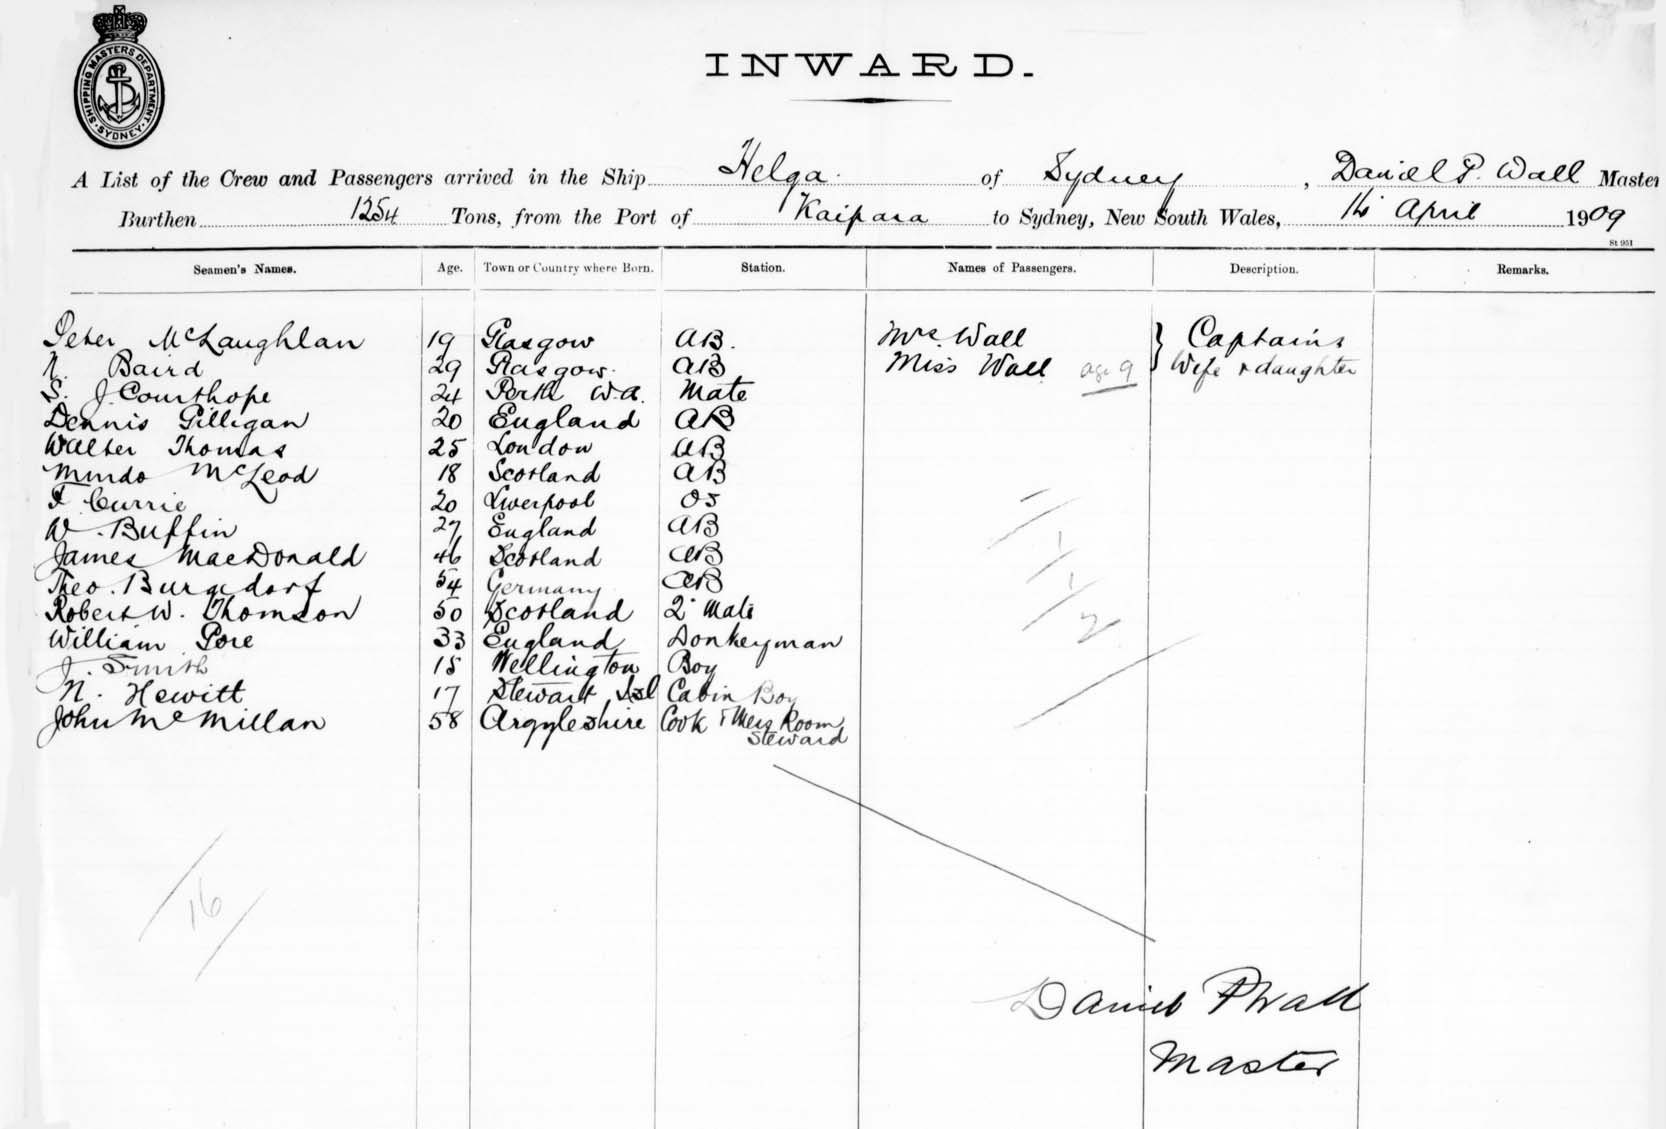 SHIPPING MASTERS DEPARTMENT SYDNEY
INWARD.
A List of the Crew and Passengers arrived in the Ship Helga of Sydney, Daniel P. Wall Master
Burthen 1254 Tons, from the Port of Kaipara to Sydney, New South Wales, April 1909
St 951
Seamen's Names. Age. Town or Country where Born. Station. Names of Passengers. Description. Remarks.
Peter McLaughlan 19 Glasgow AB. Mrs. Wall } Captain's
N. Baird 29 Glasgow. AB Miss Wall age 9 Wife & daughter
S. J. Courthope 24 Perth W.A. Mate
Dennis Gilligan 20 England AB
Walter Thomas 25 London AB
Murdo McLeod 18 Scotland AB
F Currie 20 Liverpool OS
W. Buffin 27 England AB
James MacDonald 46 Scotland AB
Theo. Burgdorf 54 Germany AB
Robert W. Thomson 50 Scotland 2 Mate
William Pore 33 England Donkeyman
J. Smith 15 Wellington Boy
N. Hewitt 17 Stewart Isl Cabin Boy
John McMillan 58 Argyleshire Cook & Mess Room
Steward
1
1
2
16
Daniel P Wall
Master